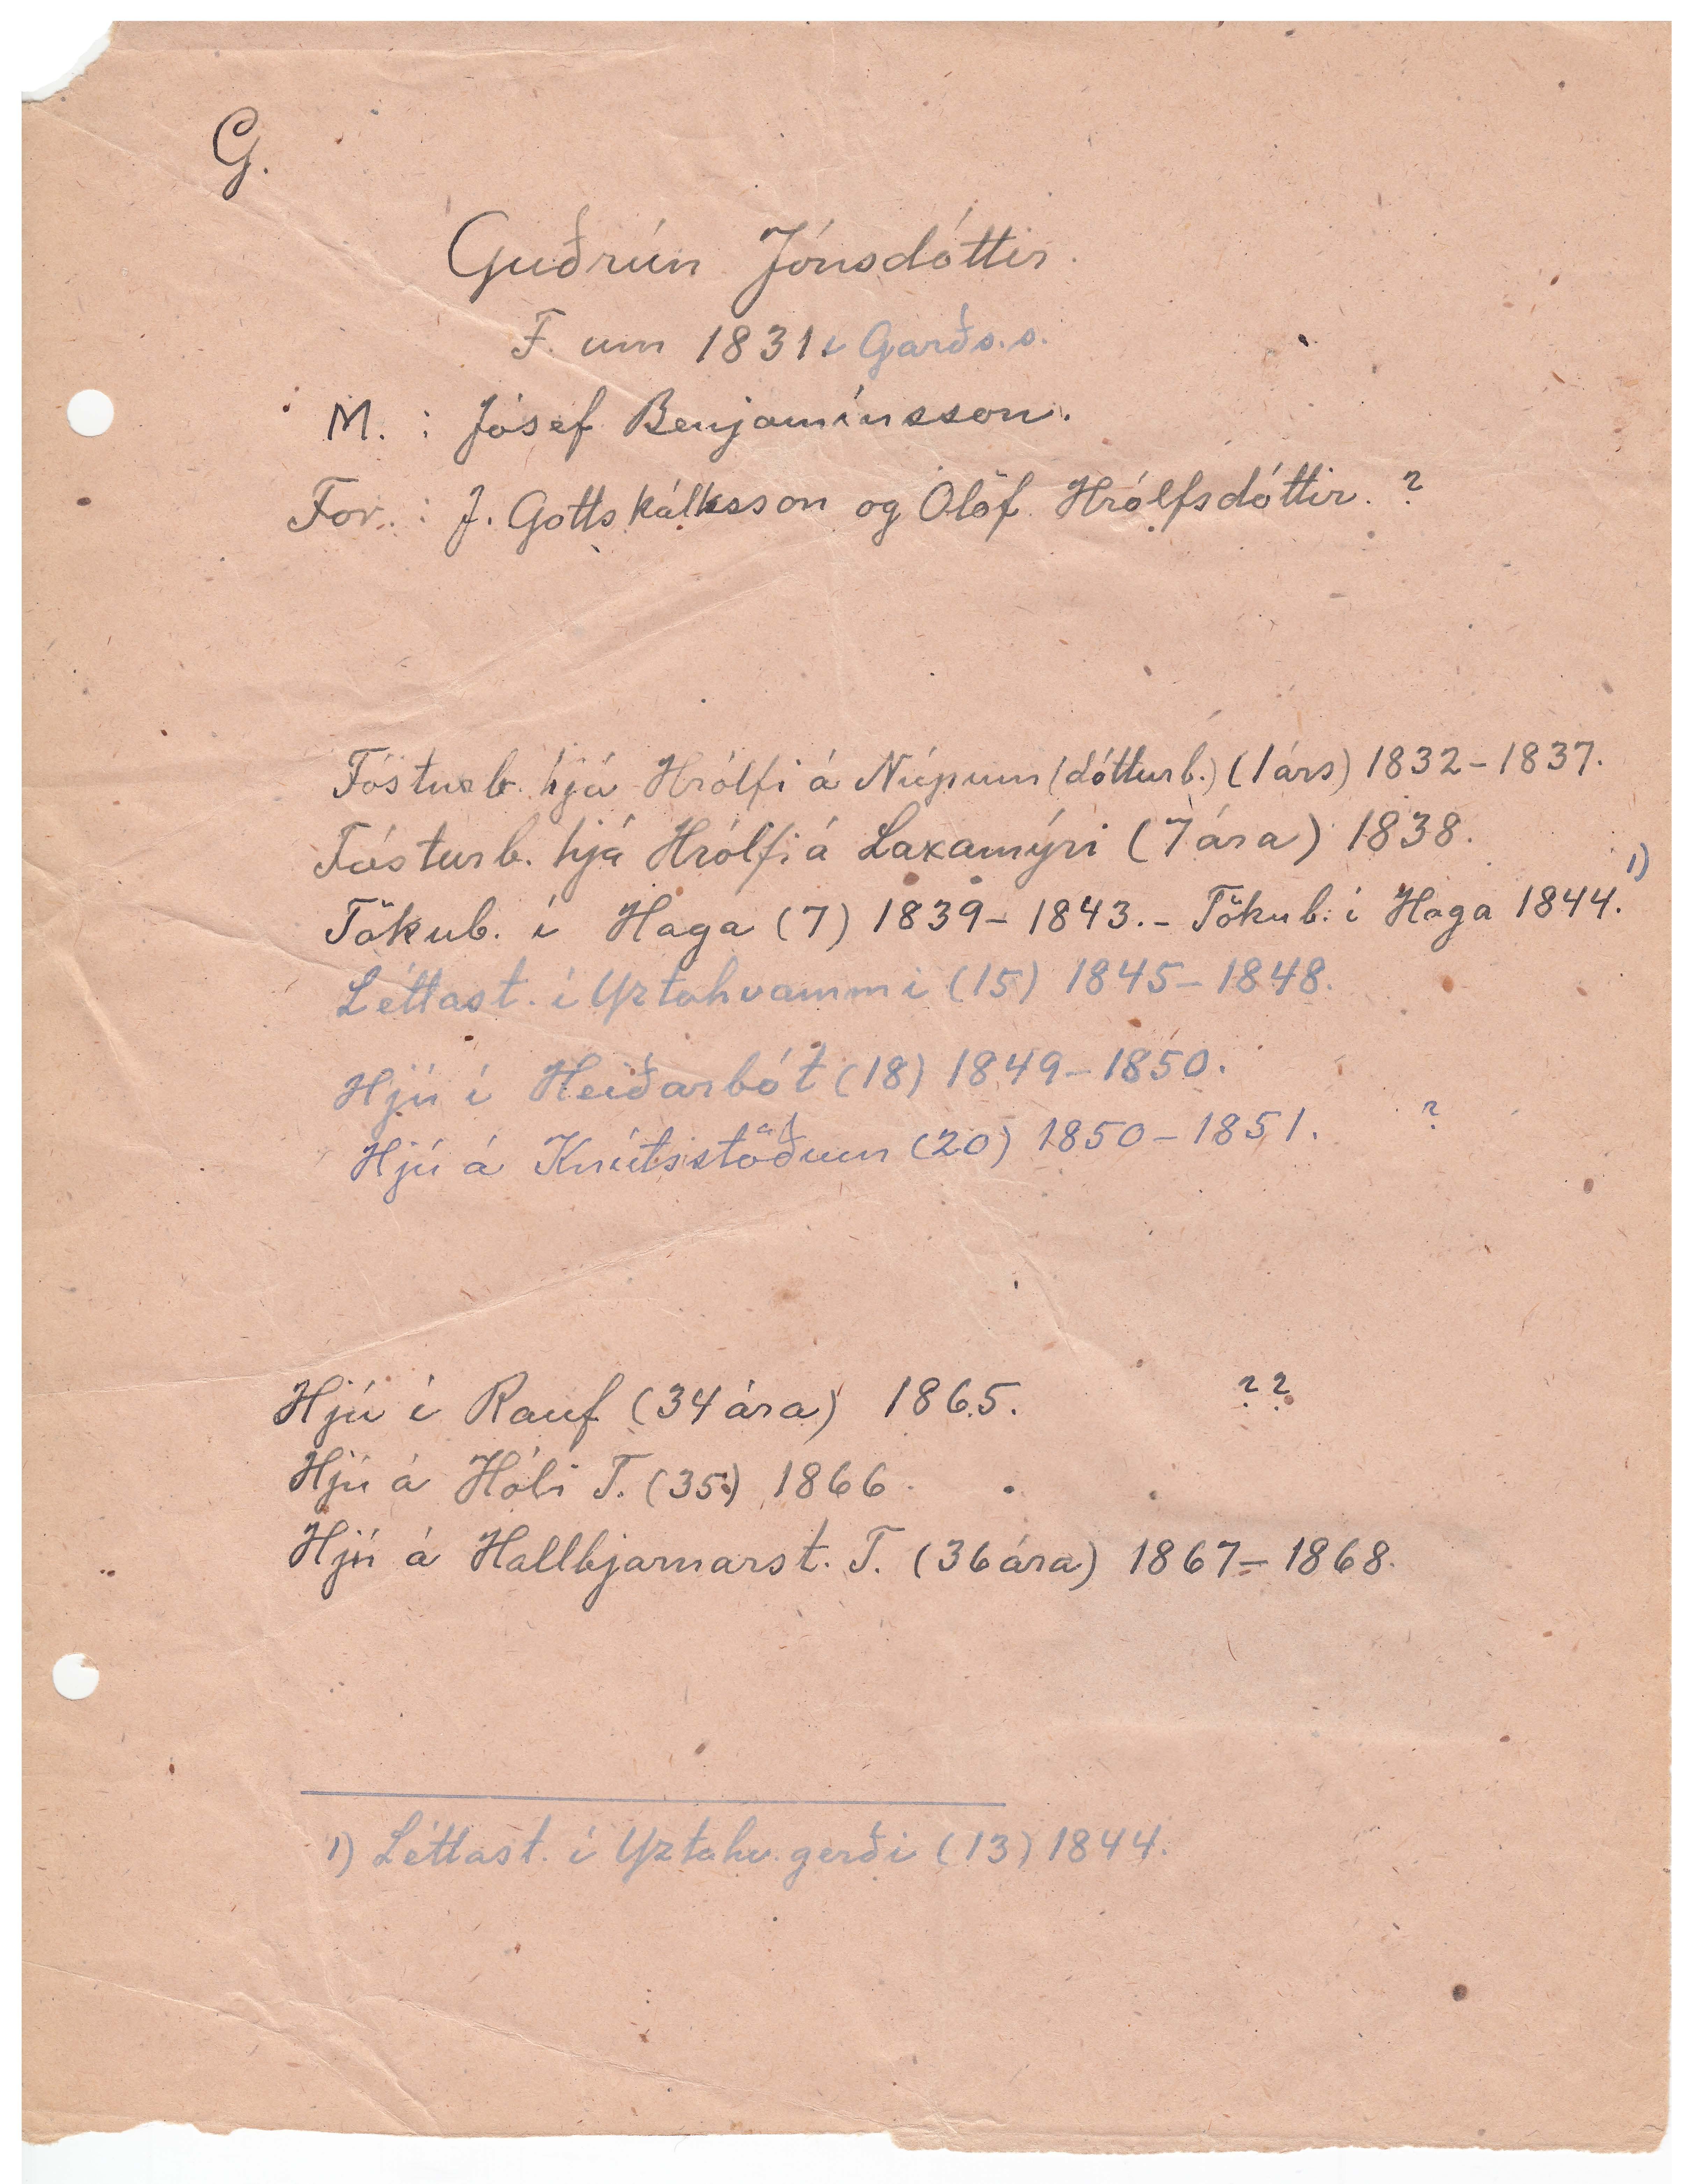 G.
Guðrún Jónsdóttir.
F. um 1831 í Garðs.s.
M. : Jósef Benjamínsson.
For. : J. Gottskálksson og Ólöf Hrólfsdóttir. ?
Fósturb. hjá Hrólfi á Núpum (dótturb.) (1 árs) 1832–1837.
Fósturb. hjá Hrólfi á Laxamýri (7 ára) 1838.
Tökub. í Haga (7) 1839–1843. – Tökub. í Haga 1844. 1)
Léttast. í Yztahvammi (15) 1845–1848.
Hjú í Heiðarbót (18) 1849–1850.
Hjú á Knútsstöðum (20) 1850–1851. ?
Hjú í Rauf (34 ára) 1865. ? ?
Hjú á Hóli T. (35) 1866.
Hjú á Hallbjarnarst. T. (36 ára) 1867–1868.
1) Léttast. í Yztahv.gerði (13) 1844.